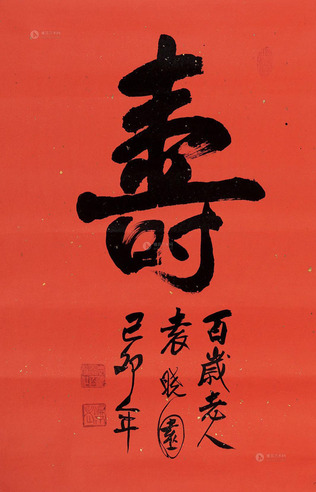 壽
百歲老人
袁晓園
己卯年